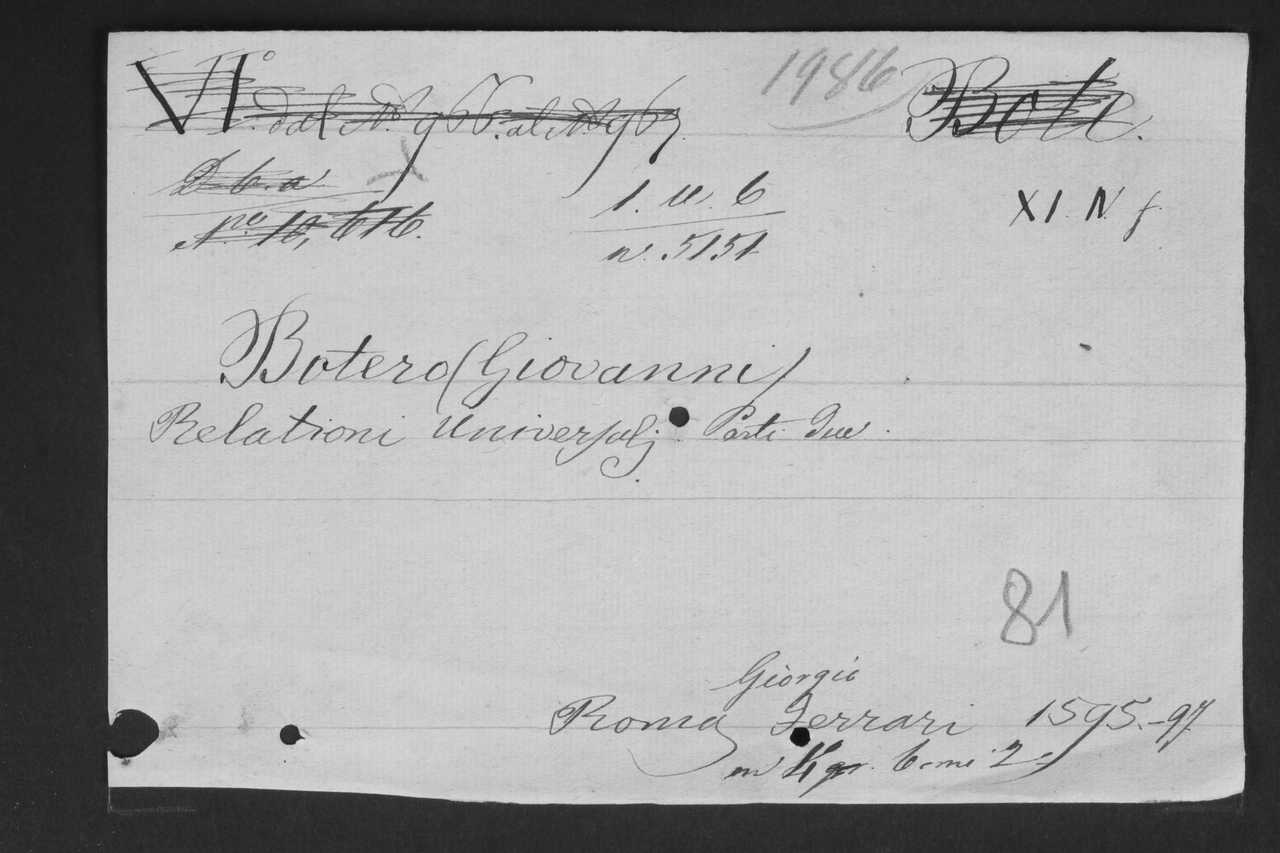 VI.° dal N.° 966. al N.° 967.
1946
Bote.
D. 6. a
N.ro 10,616.
XI. N. f.
n. 5151
Botero (Giovanni)
Relationi Universalj. Parti due.
81
Giorgio
Roma, Ferrari 1595.-97
in 4.